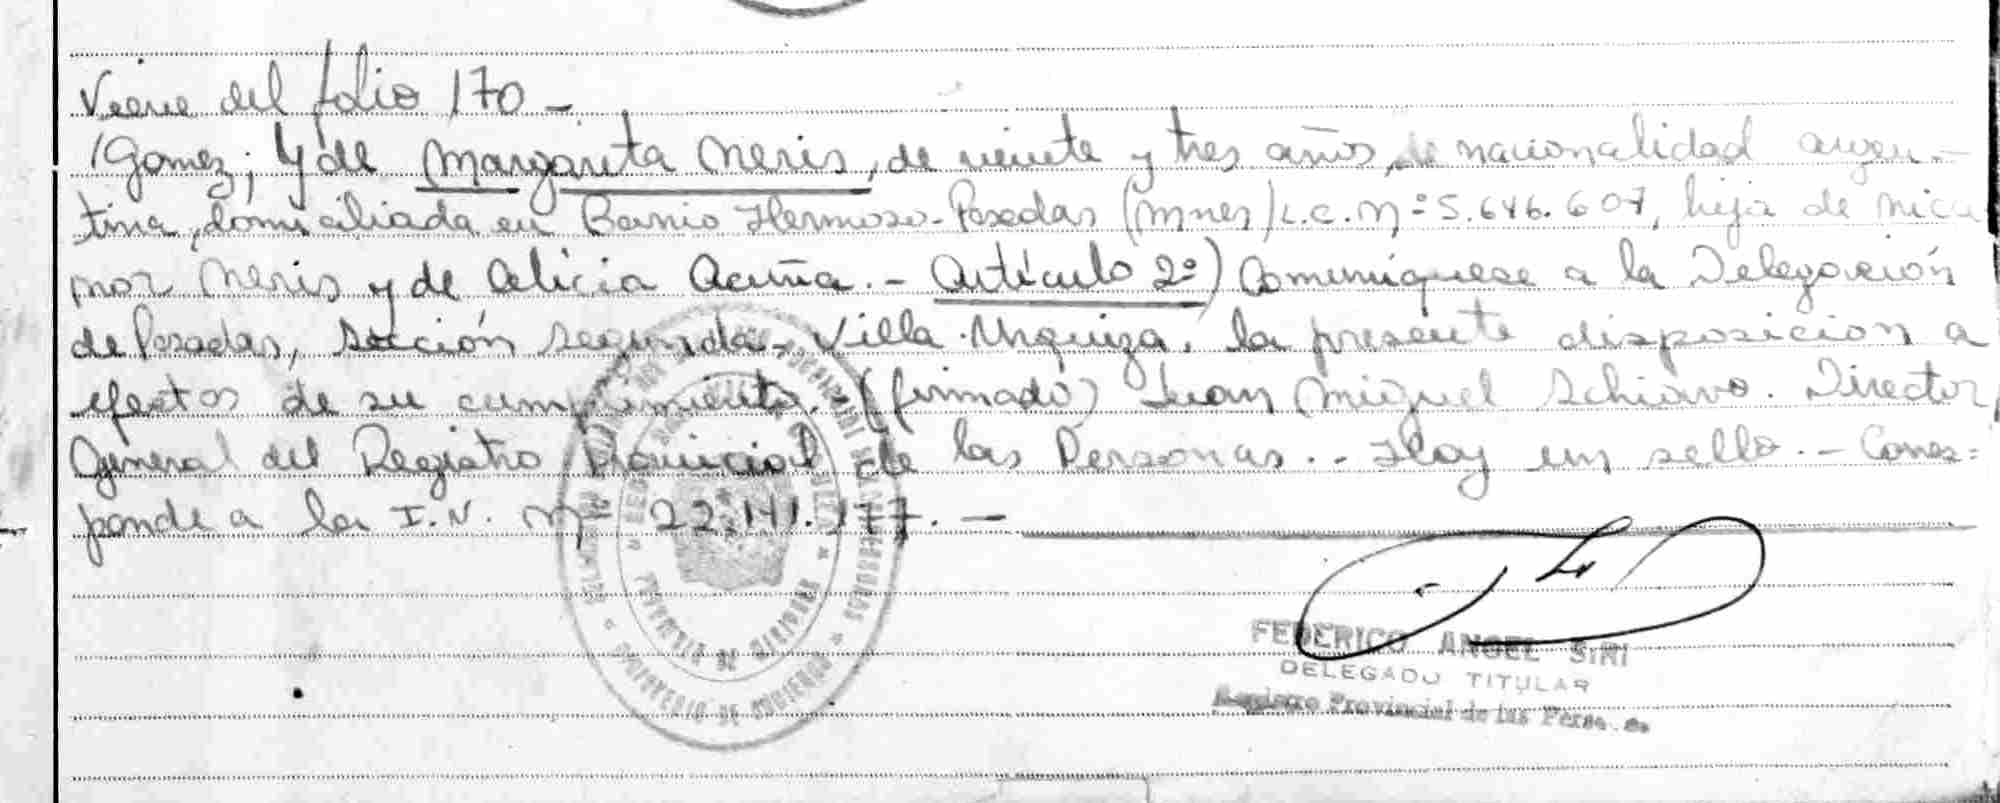 Viene del folio 170 -
/Gomez; y de Margarita Neris, de veinte y tres años, de nacionalidad argen-
tina, domiciliada en Barrio Hermoso-Posadas (Mnes) L.C. Nº 5.646.607, hija de Nica
nor Neris y de Alicia Acuña. - Artículo 2º) Comuníquese a la Delegación
de Posadas, Sección segunda - Villa Urquiza, la presente disposición a
efectos de su cumplimiento. - (firmado) Juan Miguel Schiavo. Director
General del Registro Provincial de las Personas. - Hay un sello. - Corres=
ponde a la I.N. Nº 22.141.177. -
FEDERICO ANGEL SIRI
DELEGADO TITULAR
Registro Provincial de las Pers
PROVINCIA DE MISIONES
MINISTERIO DE GOBIERNO